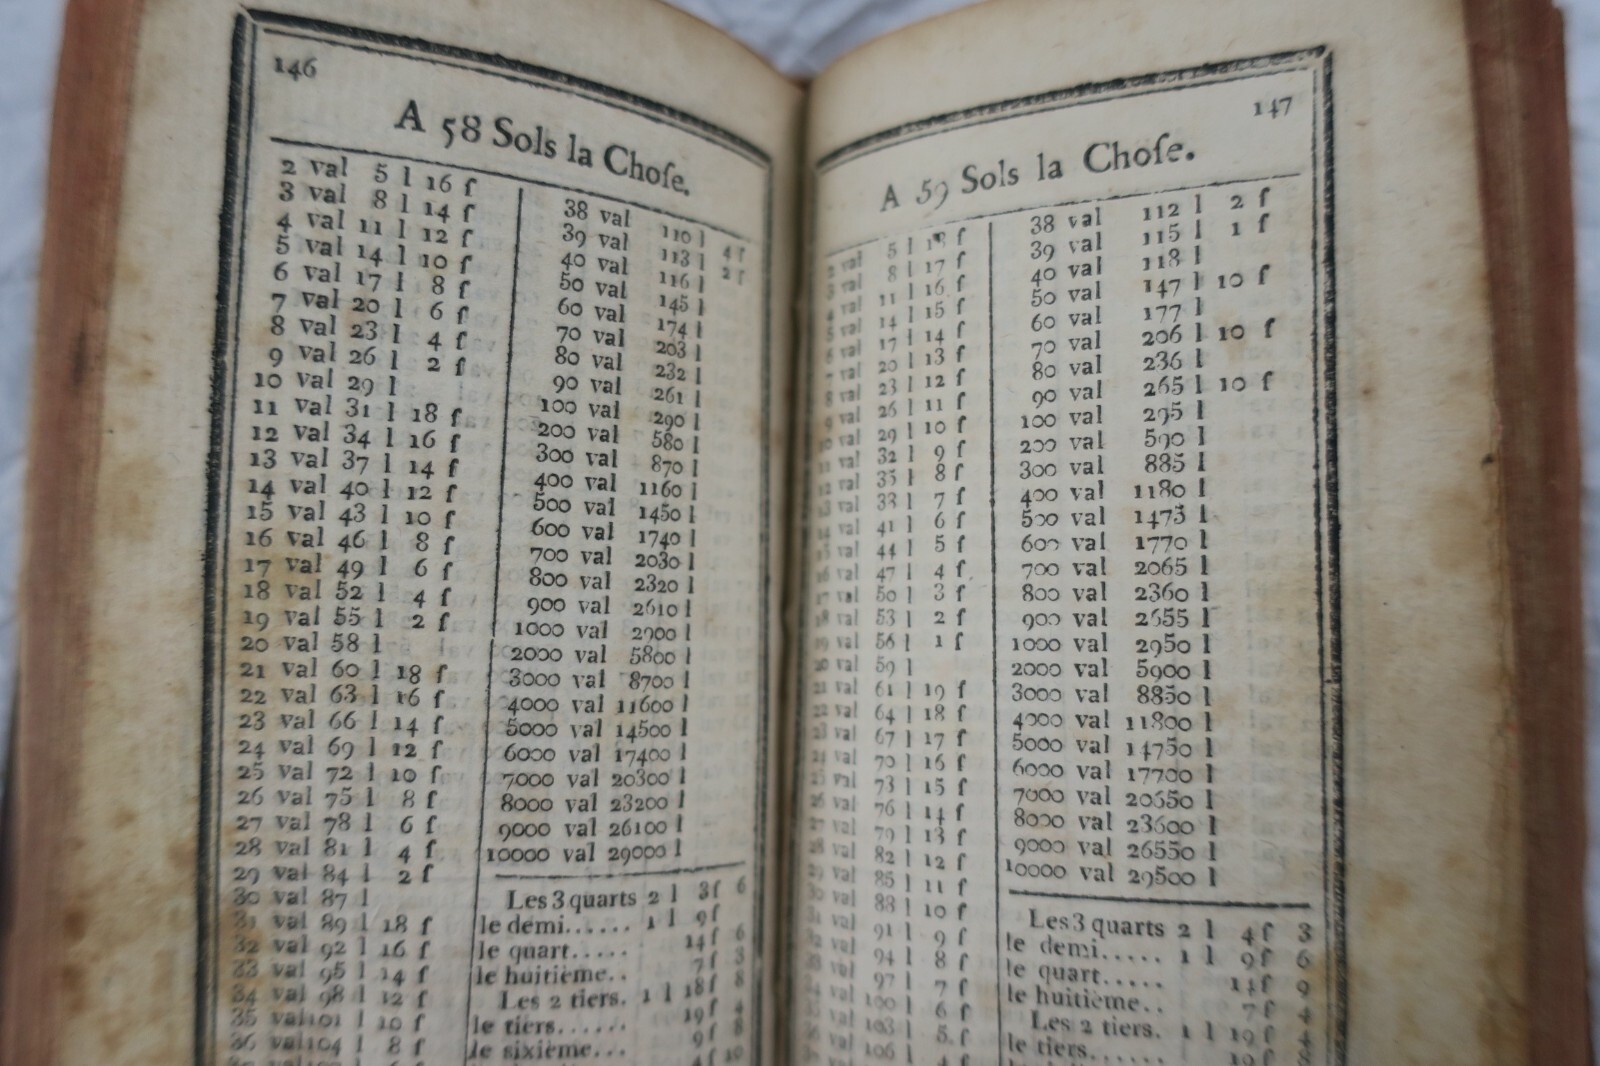 146
A 58 Sols la Choſe.
2 val 5 l 16 ſ
3 val 8 l 14 ſ
4 val 11 l 12 ſ
5 val 14 l 10 ſ
6 val 17 l 8 ſ
7 val 20 l 6 ſ
8 val 23 l 4 ſ
9 val 26 l 2 ſ
10 val 29 l
11 val 31 l 18 ſ
12 val 34 l 16 ſ
13 val 37 l 14 ſ
14 val 40 l 12 ſ
15 val 43 l 10 ſ
16 val 46 l 8 ſ
17 val 49 l 6 ſ
18 val 52 l 4 ſ
19 val 55 l 2 ſ
20 val 58 l
21 val 60 l 18 ſ
22 val 63 l 16 ſ
23 val 66 l 14 ſ
24 val 69 l 12 ſ
25 val 72 l 10 ſ
26 val 75 l 8 ſ
27 val 78 l 6 ſ
28 val 81 l 4 ſ
29 val 84 l 2 ſ
30 val 87 l
31 val 89 l 18 ſ
32 val 92 l 16 ſ
33 val 95 l 14 ſ
34 val 98 l 12 ſ
35 val 101 l 10 ſ
36 val 104 l 8 ſ
38 val 110 l 4 ſ
39 val 113 l 2 ſ
40 val 116 l
50 val 145 l
60 val 174 l
70 val 203 l
80 val 232 l
90 val 261 l
100 val 290 l
200 val 580 l
300 val 870 l
400 val 1160 l
500 val 1450 l
600 val 1740 l
700 val 2030 l
800 val 2320 l
900 val 2610 l
1000 val 2900 l
2000 val 5800 l
3000 val 8700 l
4000 val 11600 l
5000 val 14500 l
6000 val 17400 l
7000 val 20300 l
8000 val 23200 l
9000 val 26100 l
10000 val 29000 l
Les 3 quarts 2 l 3 ſ 6
le demi...... 1 l 9 ſ
le quart..... 14 ſ 6
le huitième.. 7 ſ 3
Les 2 tiers. 1 l 18 ſ 8
le tiers...... 19 ſ 4
le sixième... 9 ſ 8
4 ſ 10
147
A 59 Sols la Choſe.
2 val 5 l 18 ſ
3 val 8 l 17 ſ
4 val 11 l 16 ſ
5 val 14 l 15 ſ
6 val 17 l 14 ſ
7 val 20 l 13 ſ
8 val 23 l 12 ſ
9 val 26 l 11 ſ
10 val 29 l 10 ſ
11 val 32 l 9 ſ
12 val 35 l 8 ſ
13 val 38 l 7 ſ
14 val 41 l 6 ſ
15 val 44 l 5 ſ
16 val 47 l 4 ſ
17 val 50 l 3 ſ
18 val 53 l 2 ſ
19 val 56 l 1 ſ
20 val 59 l
21 val 61 l 19 ſ
22 val 64 l 18 ſ
23 val 67 l 17 ſ
24 val 70 l 16 ſ
25 val 73 l 15 ſ
26 val 76 l 14 ſ
27 val 79 l 13 ſ
28 val 82 l 12 ſ
29 val 85 l 11 ſ
30 val 88 l 10 ſ
31 val 91 l 9 ſ
32 val 94 l 8 ſ
33 val 97 l 7 ſ
34 val 100 l 6 ſ
35 val 103 l 5 ſ
36 val 106 l 4 ſ
38 val 112 l 2 ſ
39 val 115 l 1 ſ
40 val 118 l
50 val 147 l 10 ſ
60 val 177 l
70 val 206 l 10 ſ
80 val 236 l
90 val 265 l 10 ſ
100 val 295 l
200 val 590 l
300 val 885 l
400 val 1180 l
500 val 1475 l
600 val 1770 l
700 val 2065 l
800 val 2360 l
900 val 2655 l
1000 val 2950 l
2000 val 5900 l
3000 val 8850 l
4000 val 11800 l
5000 val 14750 l
6000 val 17700 l
7000 val 20650 l
8000 val 23600 l
9000 val 26550 l
10000 val 29500 l
Les 3 quarts 2 l 4 ſ 3
le demi..... 1 l 9 ſ 6
le quart..... 14 ſ 9
le huitième.. 7 ſ 4
Les 2 tiers. 1 l 19 ſ 4
le tiers......